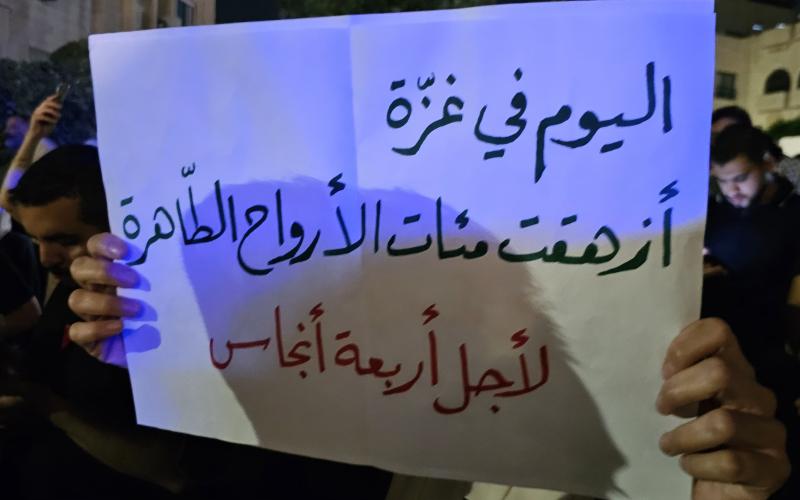 اليوم في غزّة
أزهقت مئات الأرواح الطّاهرة
لأجل أربعة أنجاس